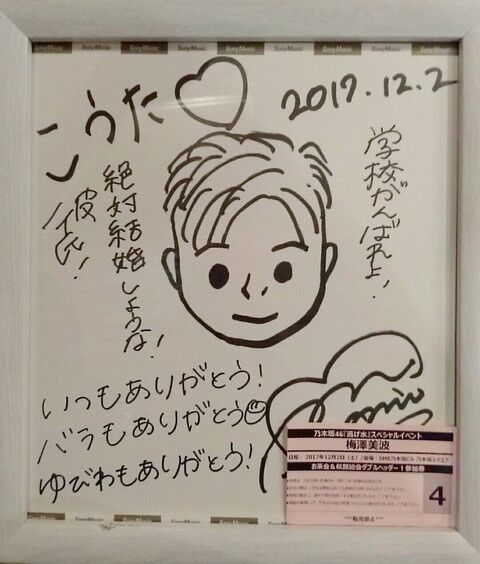 Sony Music Sony Music Sony Music Sony Music
こうた♡
2017.12.2
学校がんばれよ!
絶対結婚しような!
彼氏!
いつもありがとう!
バラもありがとう☺
ゆびわもありがとう!
乃木坂46「逃げ水」スペシャルイベント
梅澤美波
日程:2017年12月2日(土)/会場:SME乃木坂ビル 乃木坂スクエア
お茶会&似顔絵会ダブルヘッダー!参加券
4
***転売禁止***